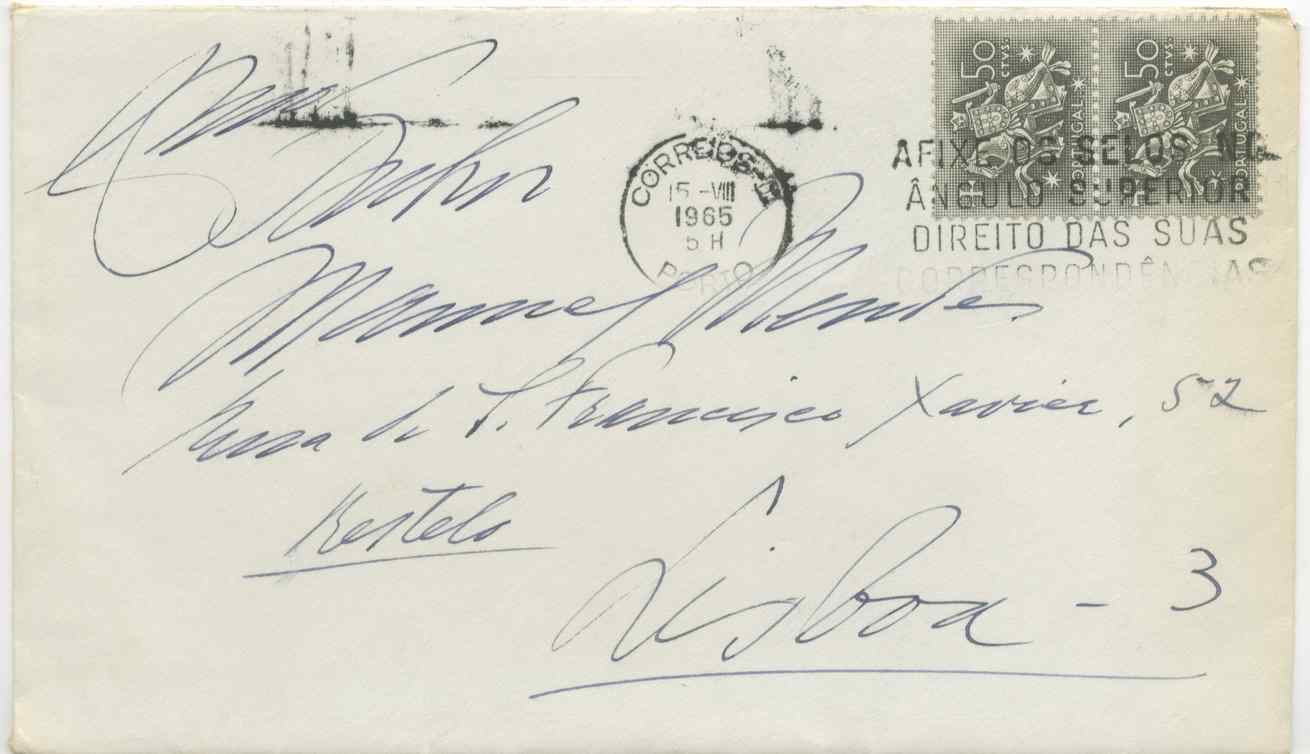 50 CTVS. PORTUGAL
50 CTVS. PORTUGAL
CORREIOS
15-VIII
1965
5 H
PORTO
AFIXE OS SELOS NO
ÂNGULO SUPERIOR
DIREITO DAS SUAS
CORRESPONDÊNCIAS
Senhor
Manuel Mendes
Rua de S. Francisco Xavier, 52
Restelo
Lisboa - 3